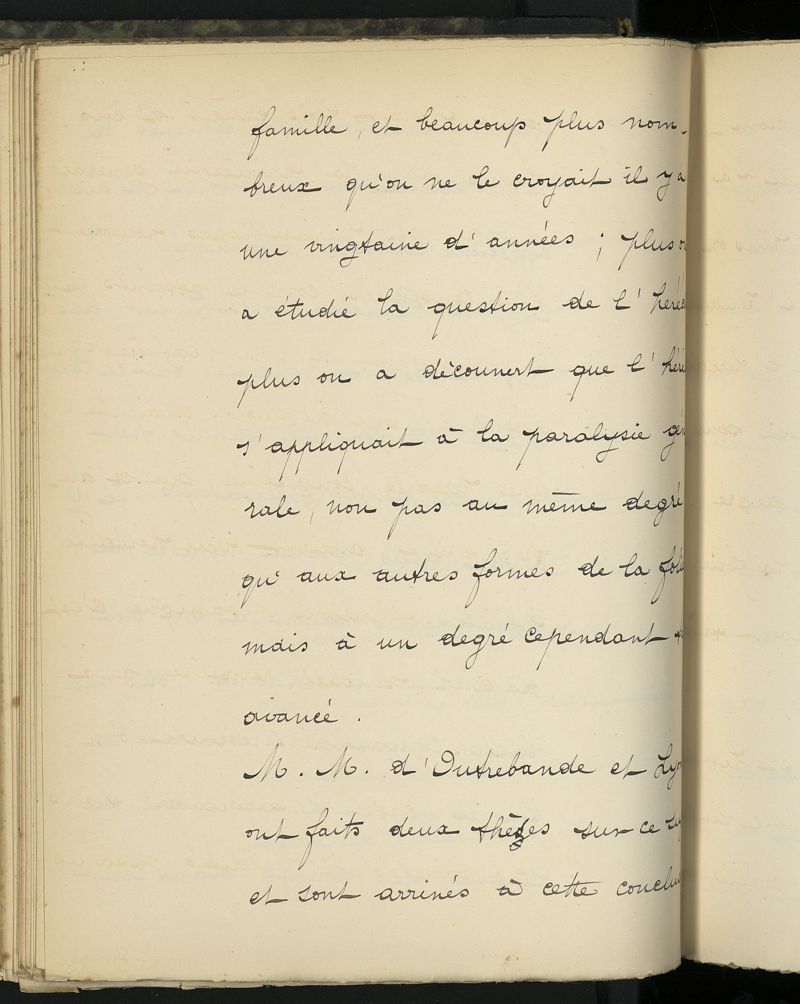 famille, et beaucoup plus nom-
breux qu'on ne le croyait il y a
une vingtaine d'années ; plus o
a étudié la question de l'héré
plus on a découvert que l'héré
s'appliquait à la paralysie gén
rale, non pas au même degré
qu'aux autres formes de la foli
mais à un degré cependant
avancé.
M. M. d'Outrebande et Ly
ont faits deux thèses sur ce su
et sont arrivés à cette conclu